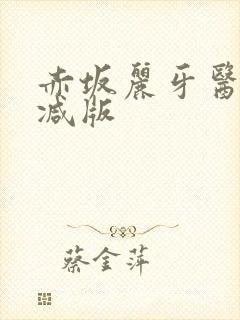 赤坂麗牙醫
减版
蔡金萍